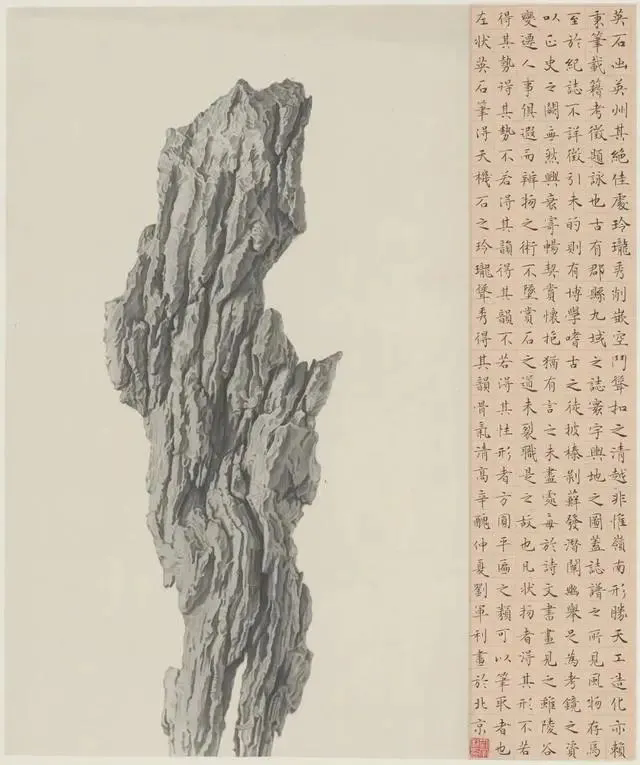 英石出英州其絕佳處玲瓏秀削嵌空鬥聳扣之清越非惟嶺南形勝天工造化亦賴
秉筆載籍考徵題詠也古有郡縣九域之誌寰宇輿地之圖蓋誌譜之所見風物存焉
至於紀誌不詳徵引未的則有博學嗜古之徒披榛剔蘚發潛闡幽舉足為考鏡之資
以正史之闕無然興衰寄暢契賞懷抱猶有言之未盡處每於詩文書畫見之雖陵谷
變遷人事俱遐而辨物之術不墜賞石之道未裂職是之故也凡狀物者得其形不若
得其勢得其勢不若得其韻得其韻不若得其性形者方圓平匾之類可以筆取者也
左狀英石筆得天機石之玲瓏聳秀得其韻骨氣清高辛醜仲夏劉軍利畫於北京